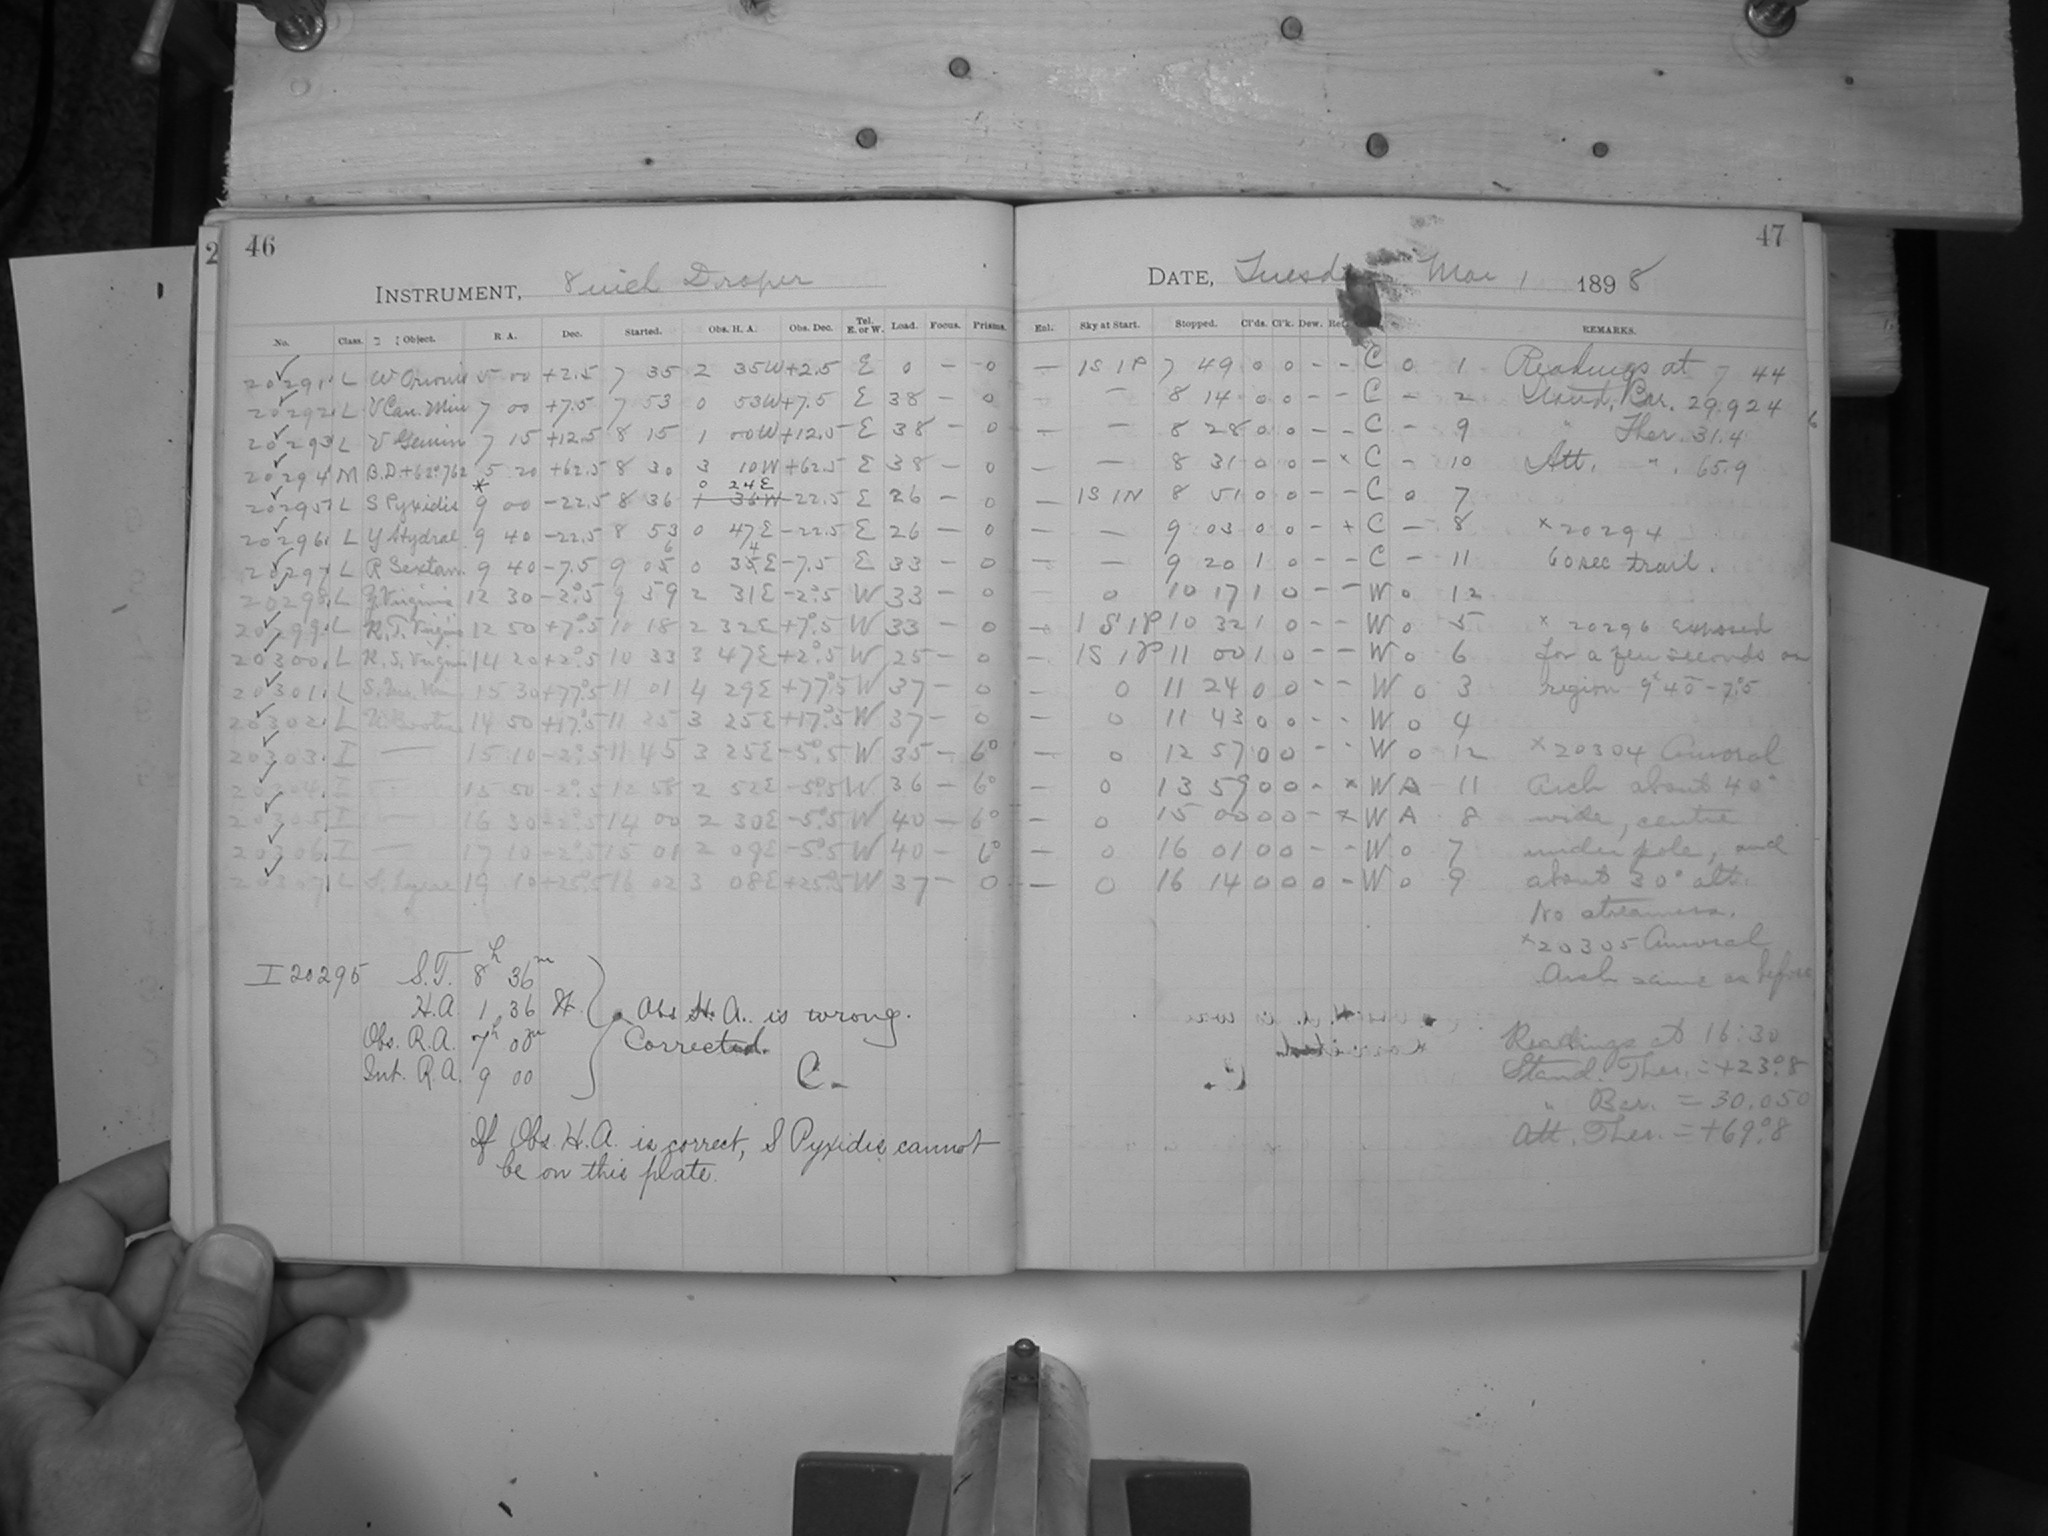 2
46
47
INSTRUMENT, 8 inch Draper
DATE, Tuesd Mar 1 1898
No. Class. Object. R. A. Dec. Started. Obs. H. A. Obs. Dec. Tel. E. or W. Load. Focus. Prisms.
Enl. Sky at Start. Stopped. Cl'ds. Cl'k. Dew. REMARKS.
20291 L W Orionis 5 00 +2.5 7 35 2 35W +2.5 E 0 – 0 — 1S 1P 7 49 0 0 – – C 0 1 Readings at 7 44
20292 L V Can. Min 7 00 +7.5 7 53 0 53W +7.5 E 38 – 0 — — 8 14 0 0 – – C – 2 Stand. Bar. 29.924
20293 L V Gemin 7 15 +12.5 8 15 1 00W +12.5 E 38 – 0 — — 8 28 0 0 – – C – 9 " Ther. 31.4
20294 M B.D.+62°762 5 20 +62.5 8 30 3 10W +62.5 E 38 – 0 — — 8 31 0 0 – x C – 10 Att. " . 65.9
0 24E
20295 L S Pyxidis * 9 00 –22.5 8 36 1 36W –22.5 E 26 – 0 — 1S 1N 8 51 0 0 – – C 0 7
20296 L Y Hydrae 9 40 –22.5 8 53 0 47E –22.5 E 26 – 0 — — 9 03 0 0 – + C – 8 x 20294
6 4
20297 L R Sextan. 9 40 –7.5 9 05 0 35E –7.5 E 33 – 0 — — 9 20 1 0 – – C – 11 60 sec trail.
20298 L Y. Virginis 12 30 –2°.5 9 59 2 31E –2°.5 W 33 – 0 — 0 10 17 1 0 – – W 0 12
20299 L R.T. Virginis 12 50 +7°.5 10 18 2 32E +7°.5 W 33 – 0 — 1S 1P 10 32 1 0 – – W 0 5 x 20296 exposed
20300 L R.S. Virginis 14 20 +2°.5 10 33 3 47E +2°.5 W 25 – 0 — 1S 1P 11 00 1 0 – – W 0 6 for a few seconds on
20301 L S. Urs. Min 15 30 +77°.5 11 01 4 29E +77°.5 W 37 – 0 — 0 11 24 0 0 – – W 0 3 region 9 40 –7°.5
20302 L Bootis 14 50 +17°.5 11 25 3 25E +17°.5 W 37 – 0 — 0 11 43 0 0 – – W 0 4
20303 I — 15 10 –2°.5 11 45 3 25E –5°.5 W 35 – 6° — 0 12 57 0 0 – – W 0 12 x 20304 Auroral
20304 I — 15 50 –2°.5 12 58 2 52E –5°.5 W 36 – 6° — 0 13 59 0 0 – x W A 11 Arch about 40°
20305 I — 16 30 –2°.5 14 00 2 30E –5°.5 W 40 – 6° — 0 15 00 0 0 – x W A 8 wide, centre
20306 I — 17 10 –2°.5 15 01 2 09E –5°.5 W 40 – 6° — 0 16 01 0 0 – – W 0 7 under pole, and
20307 L 19 10 +25°.5 16 02 3 08E +25°.5 W 37 – 0 — 0 16 14 0 0 0 – W 0 9 about 30° alt.
No streamers.
x 20305 Auroral
Arch same as before
I 20295 S.T. 8h 36m
H.A. 1 36 W. Obs H.A. is wrong.
Obs. R.A. 7h 00m Corrected.
Int. R.A. 9 00 C.
If Obs. H.A. is correct, S Pyxidis cannot
be on this plate.
Readings at 16:30
Stand. Ther. = +23°.8
" Bar. = 30.050
Att. Ther. = +69°.8